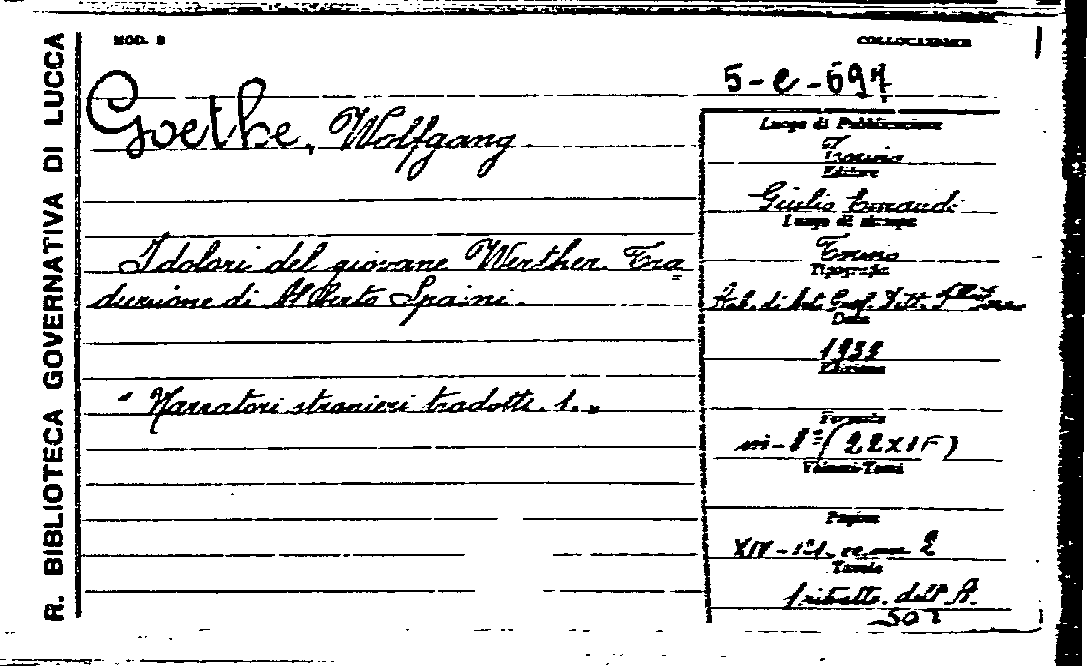 R. BIBLIOTECA GOVERNATIVA DI LUCCA
MOD. B
COLLOCAZIONE
5-e-697
Goethe, Wolfgang.
I dolori del giovane Werther. Tra=
duzione di Alberto Spaini.
"Narratori stranieri tradotti. 1."
Luogo di Pubblicazione
Torino
Editore
Giulio Einaudi
Luogo di stampa
Torino
Tipografia
Data
1938
Edizione
Formato
in-8º (22X15)
Volumi-Tomi
Pagine
Tavole
1 ritratto dell'A.